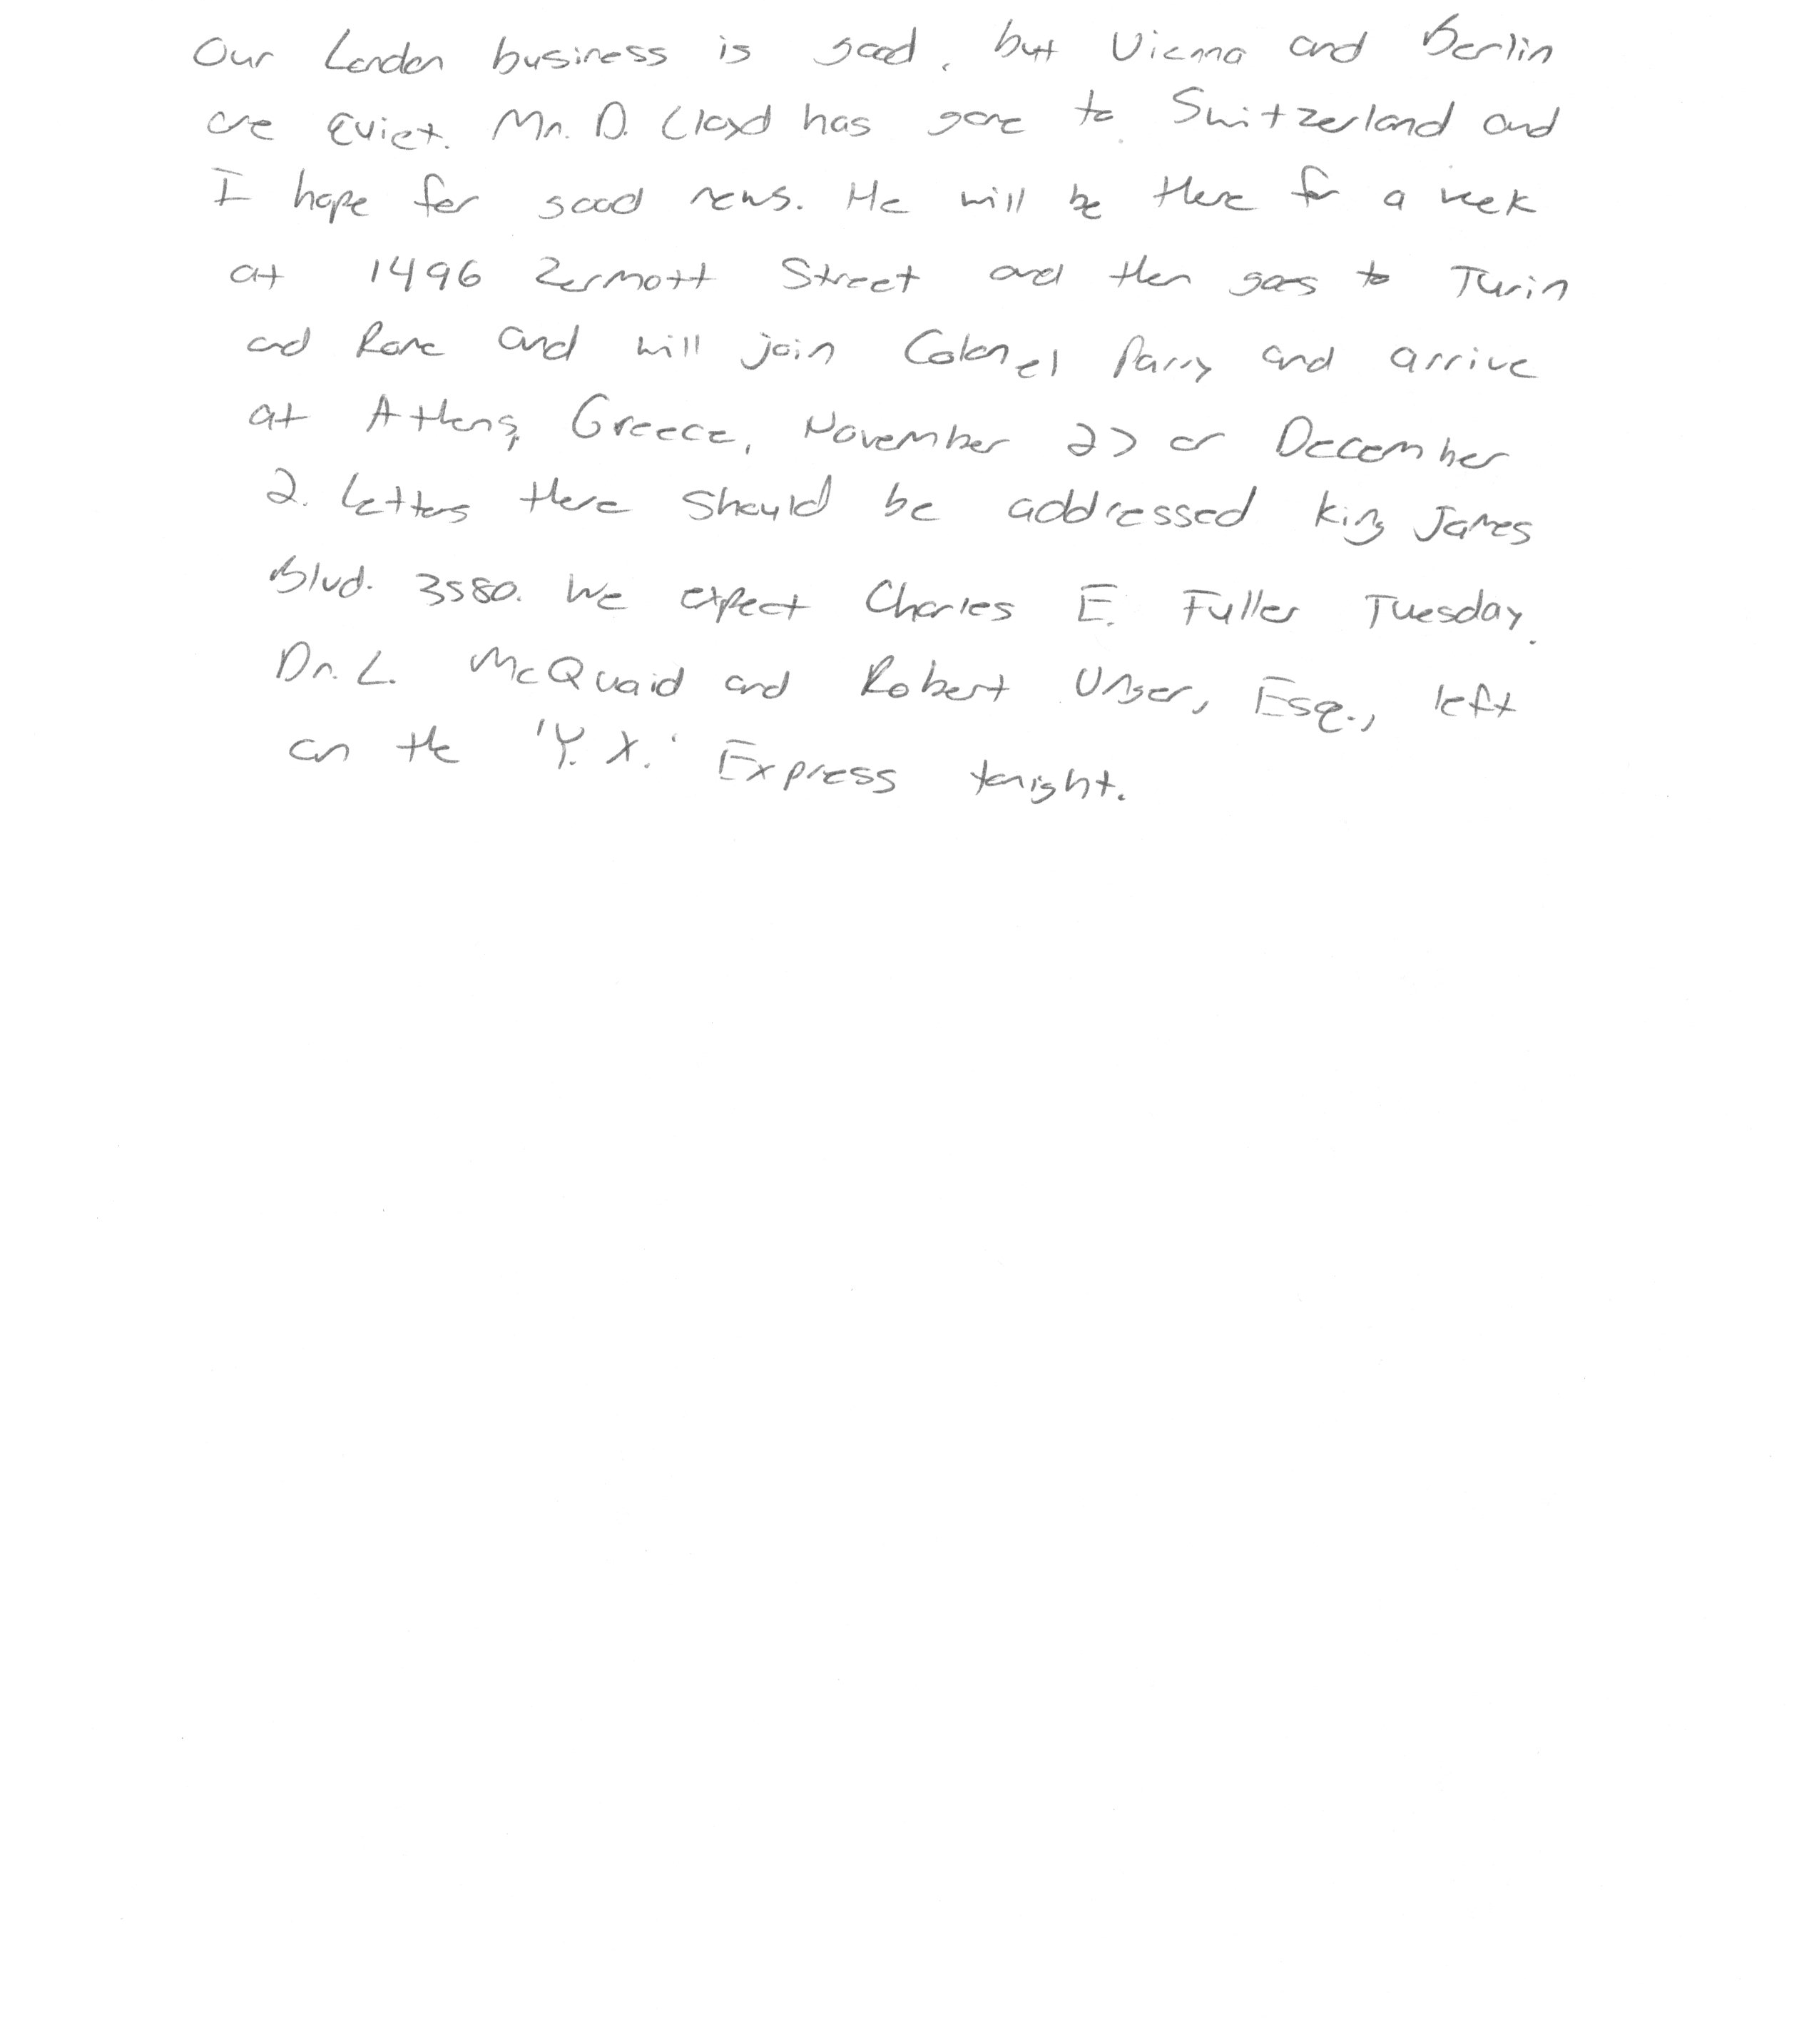 Our London business is good, but Vienna and Berlin
are quiet. Mr. D. Cloyd has gone to Switzerland and
I hope for good news. He will be there for a week
at 1496 Zermott Street and then goes to Turin
and Rome and will join Colonel Parry and arrive
at Athens, Greece, November 27 or December
2. Letters there should be addressed King James
Blvd. 3580. We expect Charles E. Fuller Tuesday.
Dr. L. McQuaid and Robert Unger, Esq., left
on the 'Y. X.' Express tonight.